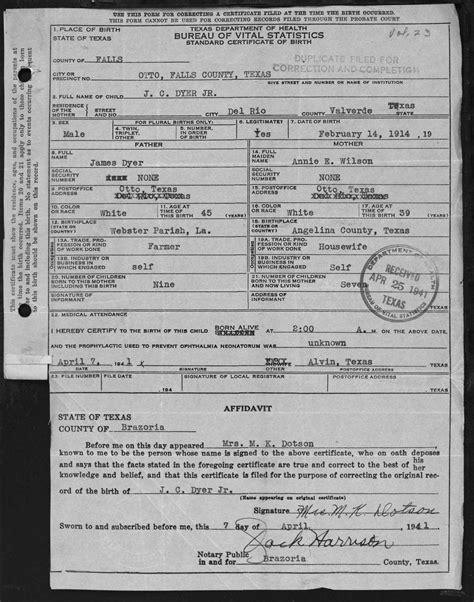 USE THIS FORM FOR CORRECTING A CERTIFICATE FILED AT THE TIME THE BIRTH OCCURRED.
THIS FORM CANNOT BE USED FOR CORRECTING RECORDS FILED THROUGH THE PROBATE COURT
1. PLACE OF BIRTH
STATE OF TEXAS
TEXAS DEPARTMENT OF HEALTH
BUREAU OF VITAL STATISTICS
STANDARD CERTIFICATE OF BIRTH
COUNTY OF FALLS
DUPLICATE FILED FOR
CORRECTION AND COMPLETION
CITY OR
PRECINCT NO. OTTO, FALLS COUNTY, TEXAS
GIVE STREET AND NUMBER OR NAME OF INSTITUTION
2. FULL NAME OF CHILD J. C. DYER JR.
RESIDENCE
OF THE
MOTHER
STREET
AND NO. CITY Del Rio COUNTY Valverde STATE Texas
3. SEX Male
FOR PLURAL BIRTHS ONLY:
4. TWIN,
TRIPLET,
OTHER
5. NUMBER,
IN ORDER
OF BIRTH
6. LEGITIMATE? Yes
7. DATE OF BIRTH February 14, 1914 , 19
FATHER
MOTHER
8. FULL
NAME James Dyer
14. FULL
MAIDEN
NAME Annie E. Wilson
SOCIAL
SECURITY
NUMBER NONE
SOCIAL
SECURITY
NUMBER NONE
9. POSTOFFICE
ADDRESS Otto, Texas
15. POSTOFFICE
ADDRESS Otto, Texas
10. COLOR
OR RACE White
11. AGE AT
TIME OF
THIS BIRTH 45 (YEARS)
16. COLOR
OR RACE White
17. AGE AT
TIME OF
THIS BIRTH 39 (YEARS)
12. BIRTHPLACE
(STATE OR
COUNTY) Webster Parish, La.
18. BIRTHPLACE
(STATE OR
COUNTY) Angelina County, Texas
13A. TRADE, PROFESSION
OR KIND
OF WORK DONE Farmer
19A. TRADE, PROFESSION
OR KIND
OF WORK DONE Housewife
13B. INDUSTRY OR
BUSINESS IN
WHICH ENGAGED self
19B. INDUSTRY OR
BUSINESS IN
WHICH ENGAGED self
20. NUMBER OF CHILDREN
BORN TO THIS MOTHER
INCLUDING THIS BIRTH Nine
21. NUMBER OF CHILDREN
BORN TO THIS MOTHER
AND NOW LIVING Seven
SIGNATURE OF
INFORMANT
ADDRESS OF
INFORMANT
RECEIVED
APR 25 1941
TEXAS
BUREAU OF VITAL STATISTICS
22. MEDICAL ATTENDANCE
I HEREBY CERTIFY TO THE BIRTH OF THIS CHILD BORN ALIVE AT 2:00 A. M. ON THE ABOVE DATE,
AND THE PROPHYLACTIC USED TO PREVENT OPHTHALMIA NEONATORUM WAS unknown
April 7, 1941 Alvin, Texas
DATE
SIGNATURE
POSTOFFICE ADDRESS
23. FILE NUMBER
FILE DATE
SIGNATURE OF LOCAL REGISTRAR
POSTOFFICE ADDRESS
AFFIDAVIT
STATE OF TEXAS
COUNTY OF Brazoria
Before me on this day appeared Mrs. M. K. Dotson
known to me to be the person whose name is signed to the above certificate, who on oath deposes
and says that the facts stated in the foregoing certificate are true and correct to the best of his
her
knowledge and belief, and that this certificate is filed for the purpose of correcting the original
record of the birth of J. C. Dyer Jr.
(Name appearing on original certificate)
Signature Mrs. M. K. Dotson
Sworn to and subscribed before me, this 7 day of April 1941
Jack Harrison
Notary Public
in and for Brazoria County, Texas.